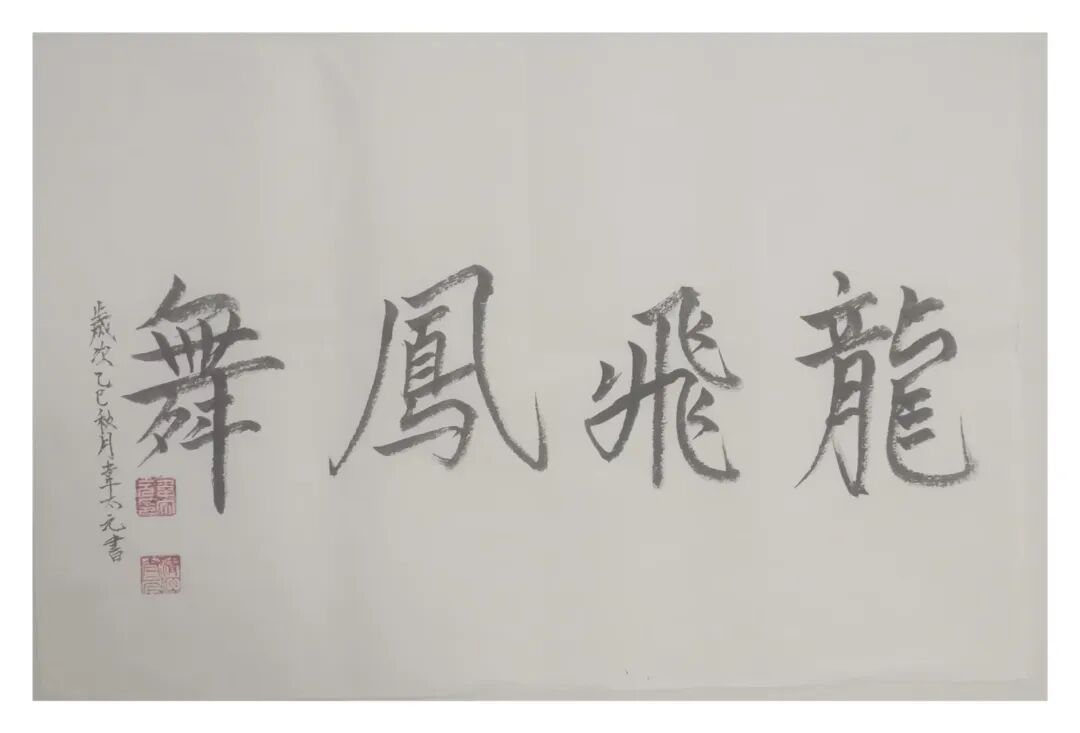 龍飛鳳舞
歲次乙巳秋月韋太元書